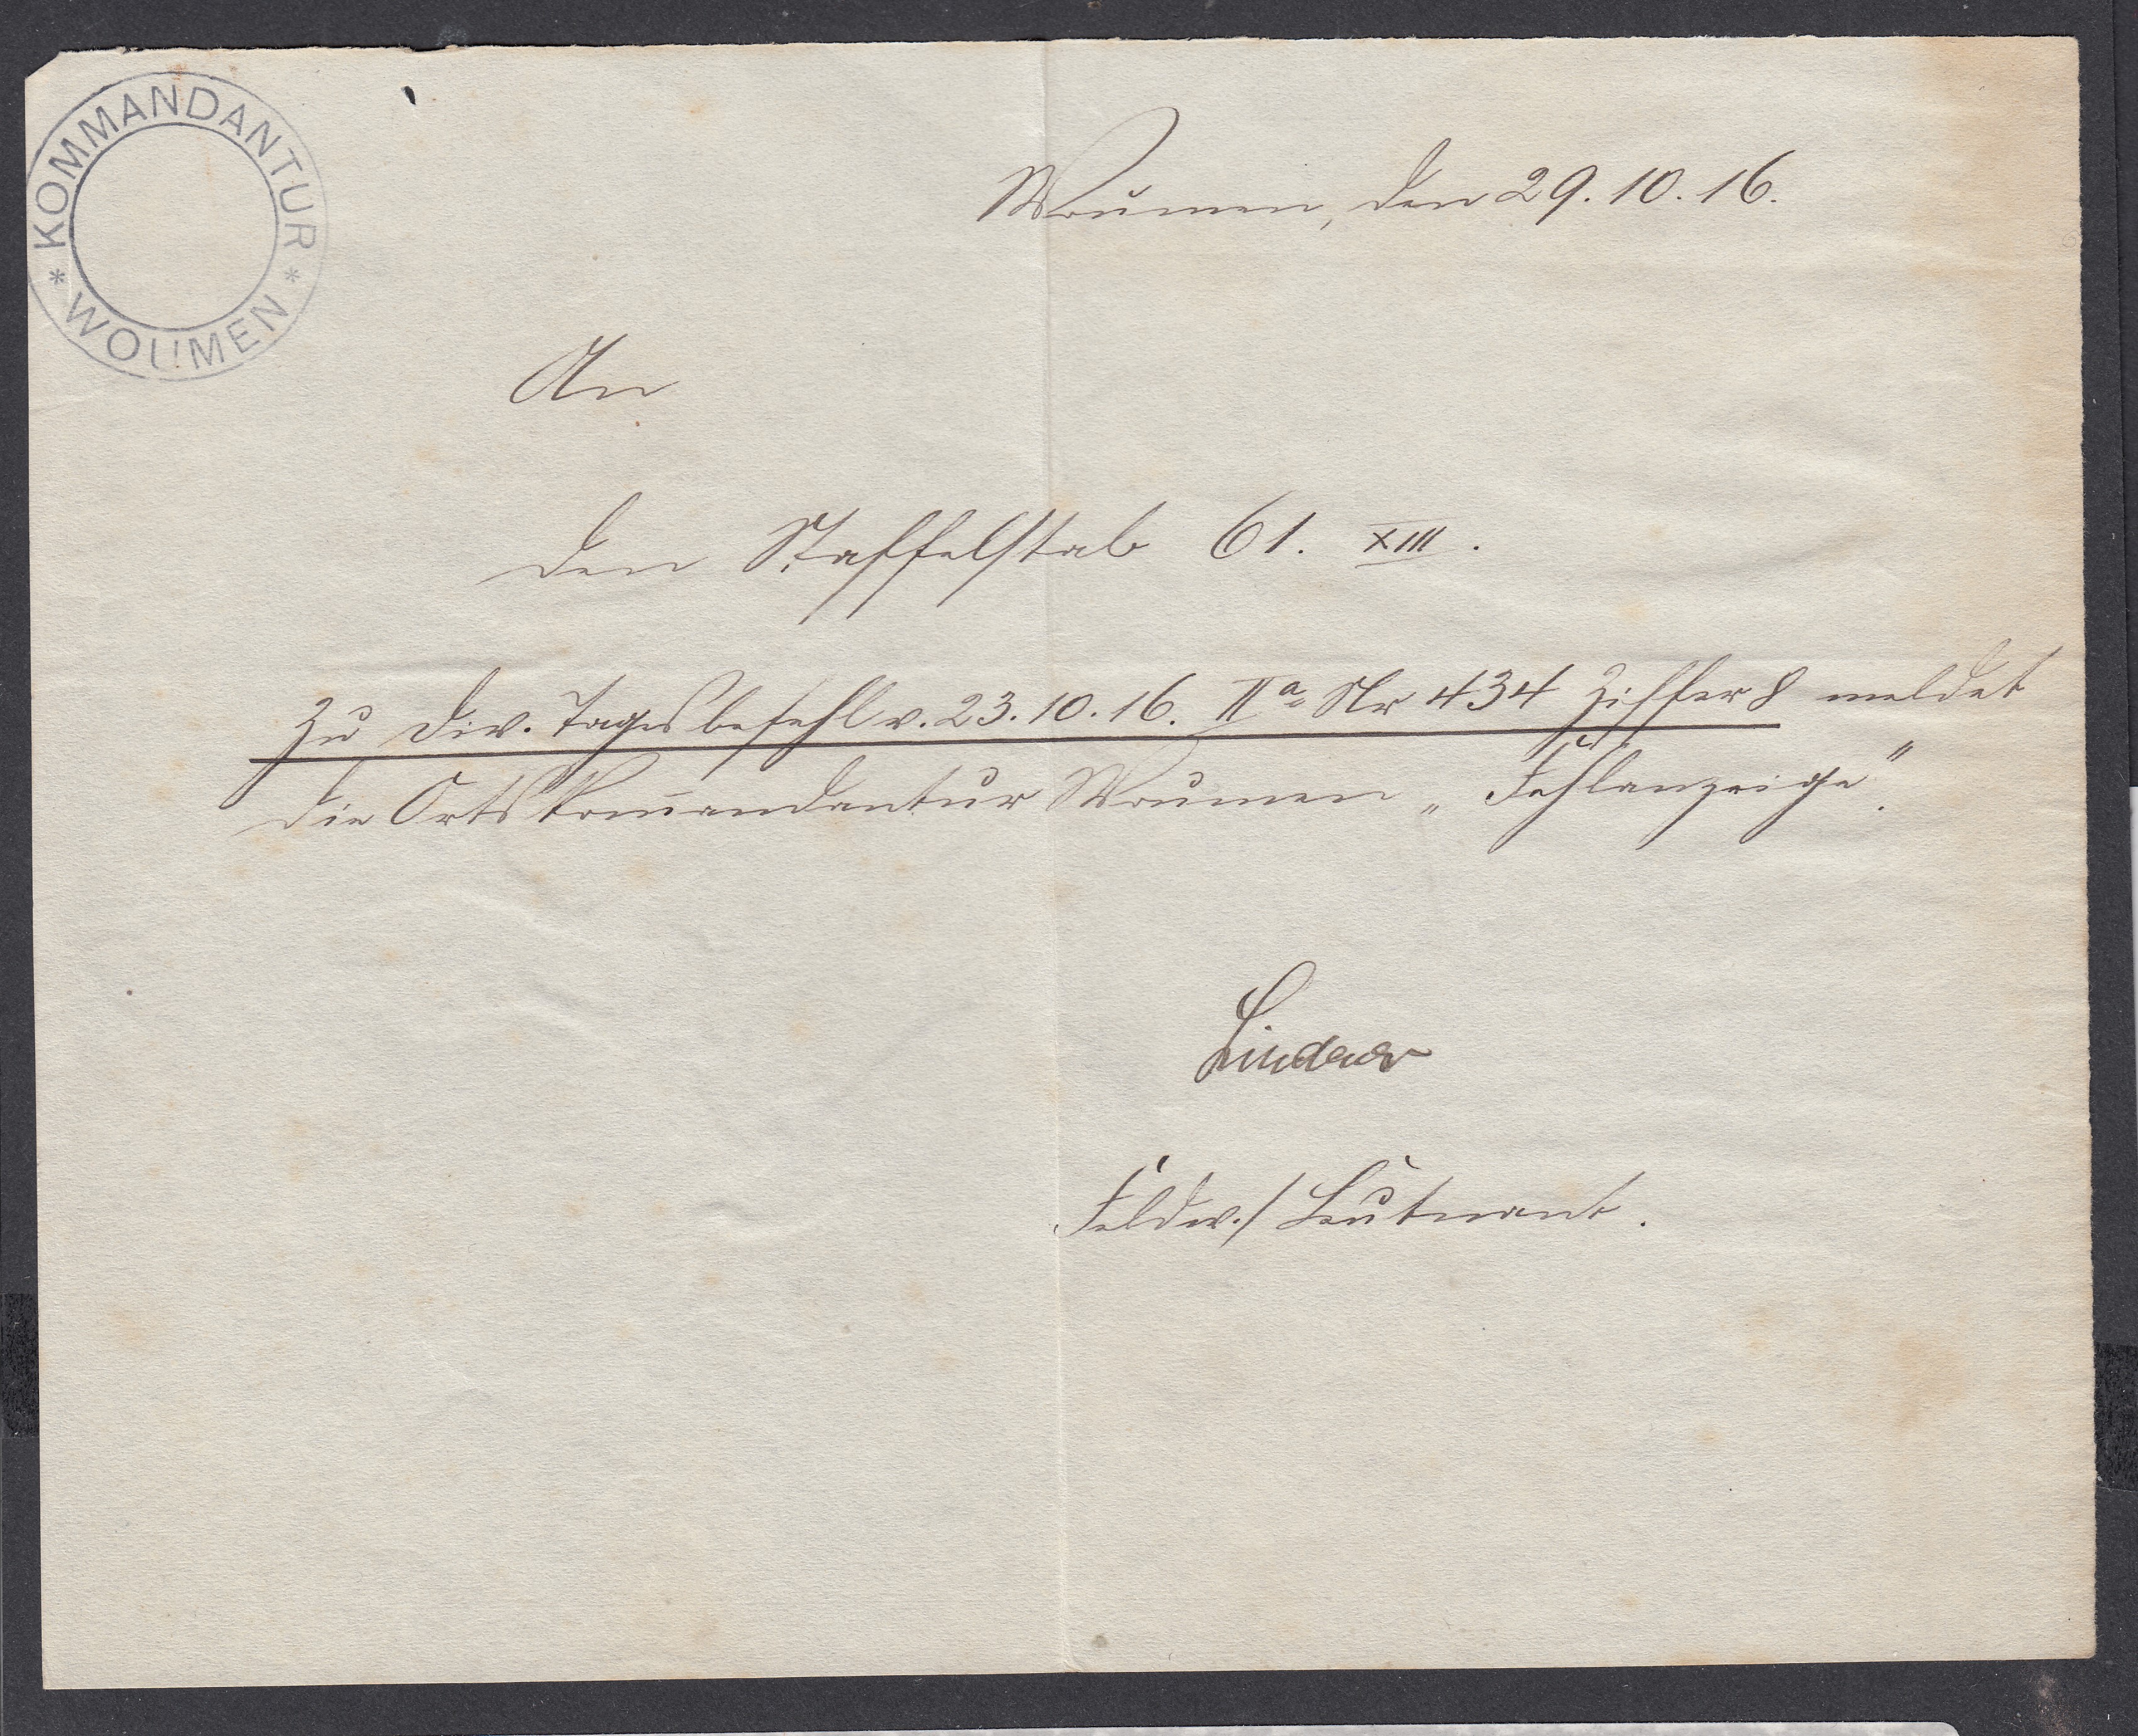 * KOMMANDANTUR *
WOUMEN
Woumen, den 29.10.16.
An
den Staffelstab 61. XIII.
Zu Div. Tagesbefehl v. 23.10.16. IIa Nr 434 Ziffer 8 meldet
die Ortskom̄andantur Woumen „Fehlanzeige".
Lindner
Feldw./Leutnant.